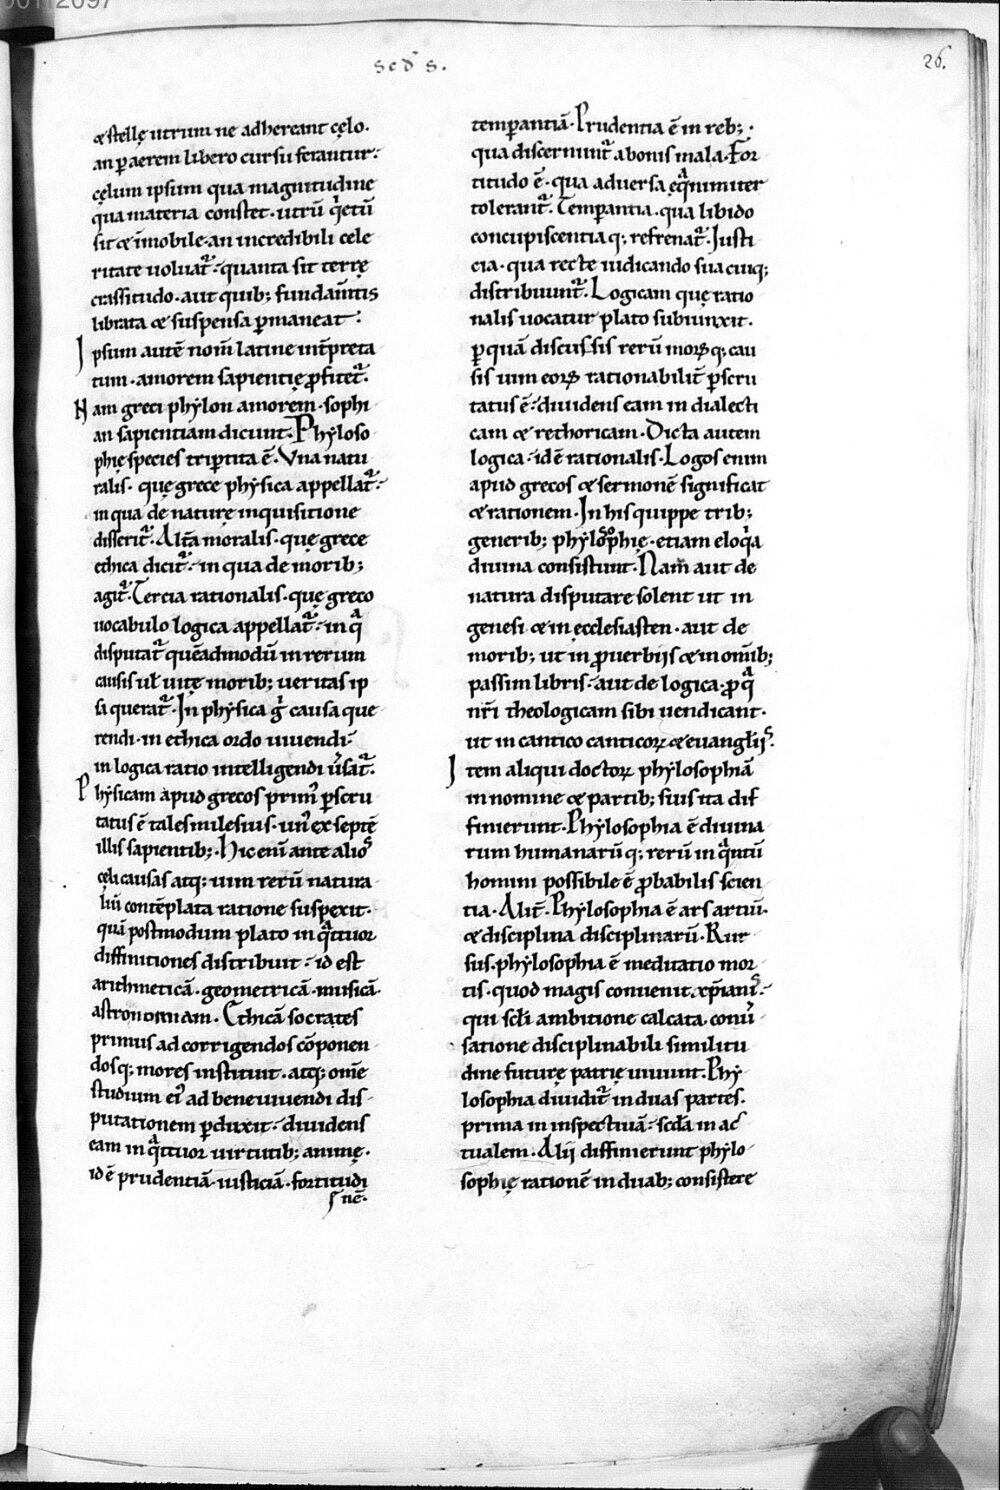 00112097
scds s.
26.
& stellę utrum ne adhereant cęlo.
an p̄ aerem libero cursu ferantur:
cęlum ipsum qua magnitudine
qua materia constet. utrū q̇etū
sit & īmobile. an incredibili cele
ritate uoluat̃. quanta sit terrę
crassitudo. aut quib; fundam̄tis
librata & suspensa p̄maneat:
Ipsum autē nom̄ latine int̄preta
tum. amorem sapientię ꝓfitet̃.
Nam greci phẏlon amorem. sophi
an sapientiam dicunt. Phẏloso
phię species trip̄tita ē. Vna natu
ralis. quę grece phẏsica appellat̃:
in qua de naturę inquisitione
disserit̃. Alt̄a moralis. quę grece
ethica dicit̃. in qua de morib;
agit̃. Tercia rationalis. quę greco
uocabulo logica appellat̃. in q̄
disputat̃ quēadmodū in rerum
causis ul̄ uitę morib; ueritas ip
sa querat̃. In phẏsica g̊ causa que
rendi. in ethica ordo uiuendi.
in logica ratio intelligendi ūsat̃.
Phẏsicam apud grecos prim᷒ p̄scru
tatus ē tales milesius. un᷒ ex septē
illis sapientib;. Hic eni᷒ ante alios
cęli causas atq; uim rerū natura
liū contēplata ratione suspexit.
quā postmodum plato in q̄ttuor
diffinitiones distribuit: id est
arithmeticā. geometricā. musicā.
astronomiam. Ethicā socrates
primus ad corrigendos cōponen
dosq; mores instituit. atq; om̄e
studium ei᷒ ad bene uiuendi dis
putationem p̄duxit: diuidens
eam in q̄ttuor uirtutib; animę.
id ē prudentiā. iusticiā. fortitudi
nē.
temp̄antiā. Prudentia ē in reb;.
qua discernunt̃ a bonis mala. For
titudo ē. qua aduersa ęq̄nimiter
tolerant̃. Temp̄antia. qua libido
concupiscentiaq; refrenat̃. Justi
cia. qua recte iudicando sua cuiq;
distribuunt̃. Logicam quę ratio
nalis uocatur plato subiunxit.
p̄ quā discussis rerū morūq; cau
sis uim eorꝝ rationabilit̄ p̄scru
tatus ē. diuidens eam in dialecti
cam & rethoricam. Dicta autem
logica. id ē rationalis. Logos enim
apud grecos & sermonē significat
& rationem. In his quippe trib;
generib; phẏlosophię. etiam eloq̇a
diuina consistunt. Nam̄ aut de
natura disputare solent ut in
genesi & in ęcclesiasten. aut de
morib; ut in ꝓuerbiis & in om̄ib;
passim libris. aut de logica. ꝓ q̄
nr̄i theologicam sibi uendicant.
ut in cantico canticorꝝ & euangl̄iis.
Item aliqui doctorꝝ phẏlosophiā
in nomine & partib; suis ita dif
finierunt. Phẏlosophia ē diuina
rum humanarūq; rerū in q̄ntū
homini possibile ē ꝓbabilis scien
tia. Alit̄. Phẏlosophia ē ars artiū.
& disciplina disciplinarū. Rur
sus. phẏlosophia ē meditatio mor
tis. quod magis conuenit xp̄ianis.
qui scl̄i ambitione calcata. conū
satione disciplinabili similitu
dine futurę patrię uiuunt. Phẏ
losophia diuidit̃ in duas partes.
prima in inspectiuā: scd̄a in ac
tualem. Alii diffinierunt phẏlo
sophię rationē in duab; consistere